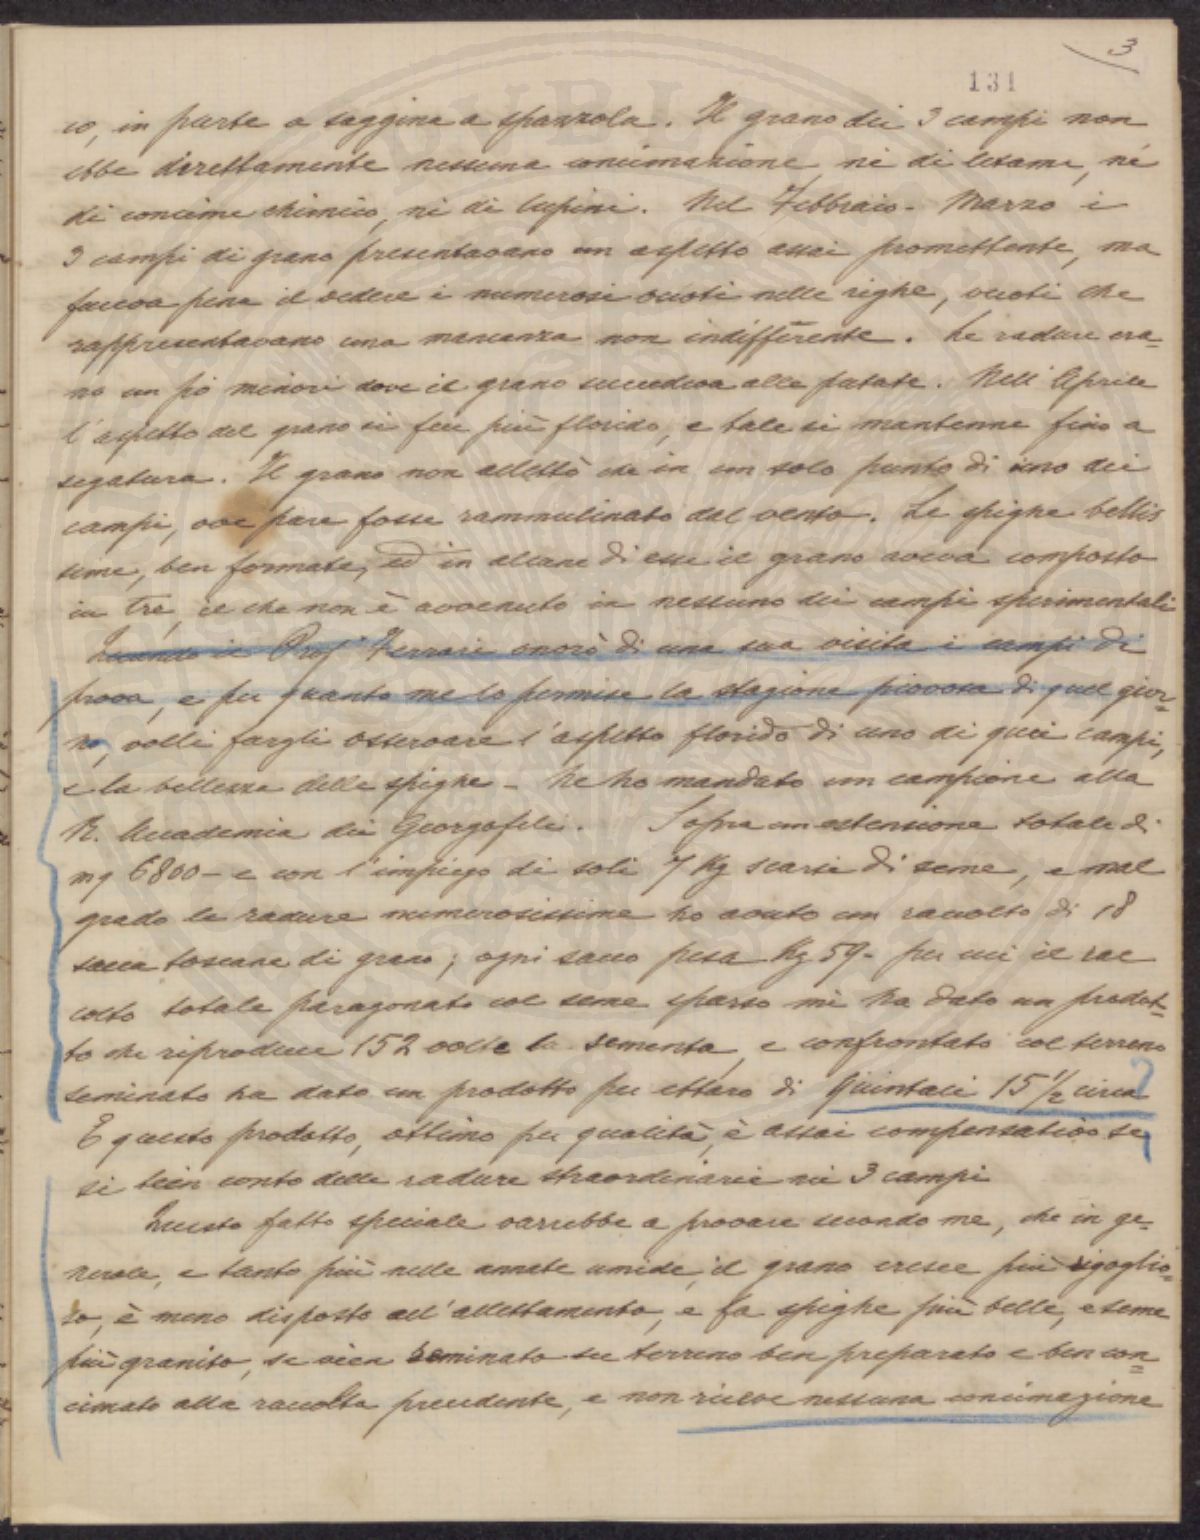 3
131
co, in parte a saggina a spazzola. Il grano dei 3 campi non
ebbe direttamente nessuna concimazione, nè di letame, nè
di concime chimico, nè di lupini. Nel Febbraio-Marzo i
3 campi di grano presentavano un aspetto assai promettente, ma
faceva pena il vedere i numerosi vuoti nelle righe, vuoti che
rappresentavano una mancanza non indifferente. Le radure era-
no un pò minori dove il grano succedeva alle patate. Nell'Aprile
l'aspetto del grano si fece più florido, e tale si mantenne fino a
segatura. Il grano non allettò che in un solo punto di uno dei
campi, ove pare fosse rammulinato dal vento. Le spighe bellis
sime, ben formate, ed in alcune di esse il grano aveva composto
in tre, il che non è avvenuto in nessuno dei campi sperimentali
Quando il Prof Ferrari onorò di una sua visita i campi di
prova, e per quanto me lo permise la stagione piovosa di quel gior=
no, volli fargli osservare l'aspetto florido di uno di quei campi,
e la bellezza delle spighe - Ne ho mandato un campione alla
R. Accademia dei Georgofili. Sopra un estensione totale di
mq 6800 - e con l'impiego di soli 7 Kg scarsi di seme, e mal
grado le radure numerosissime ho avuto un raccolto di 18
sacca toscane di grano; ogni sacco pesa Kg 59 - per cui il rac
colto totale paragonato col seme sparso mi ha dato un prodot=
to che riproduce 152 volte la sementa, e confrontato col terreno
seminato ha dato un prodotto per ettaro di Quintali 15 1/2 circa
E questo prodotto, ottimo per qualità, è assai compensativo se
si tien conto delle radure straordinarie nei 3 campi
Questo fatto speciale varrebbe a provare secondo me, che in ge=
nerale, e tanto più nelle annate umide, il grano cresce più rigoglio=
so, è meno disposto all'allettamento, e fa spighe più belle, e seme
più granito, se vien seminato su terreno ben preparato e ben con=
cimato alla raccolta precedente, e non riceve nessuna concimazione